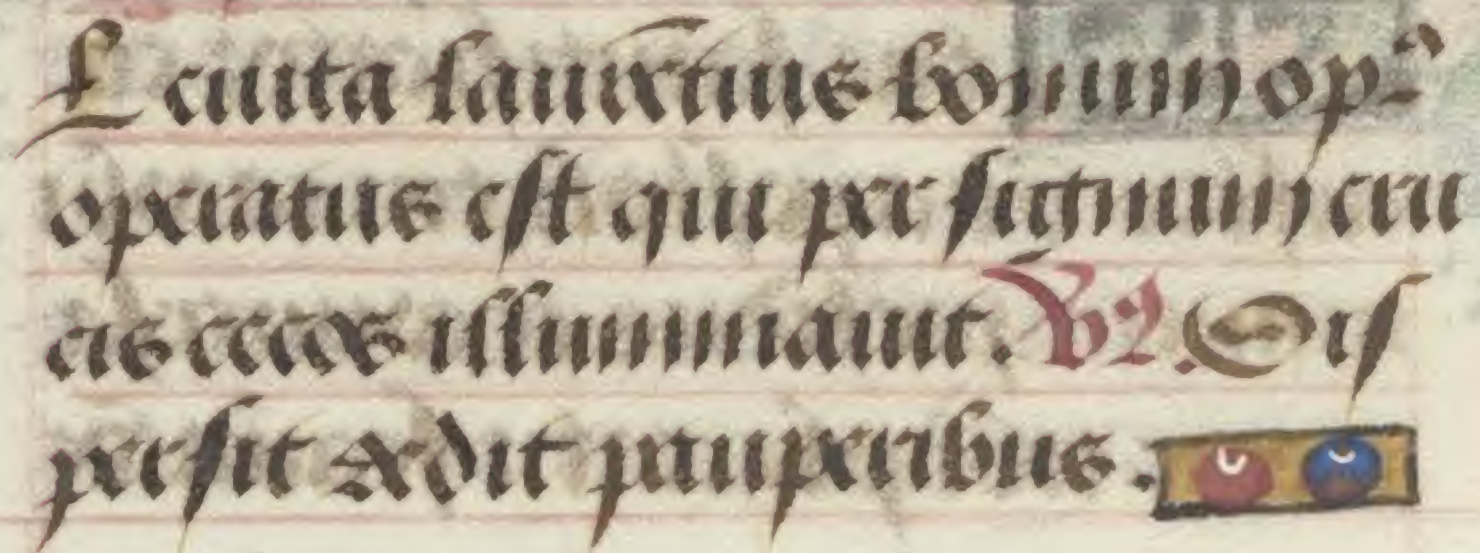 Leuita laurẽtius bonum opꝰ
operatus est qui per signum cru
cis cecos illuminauit. ℣. Dis
persit dedit pauperibus.